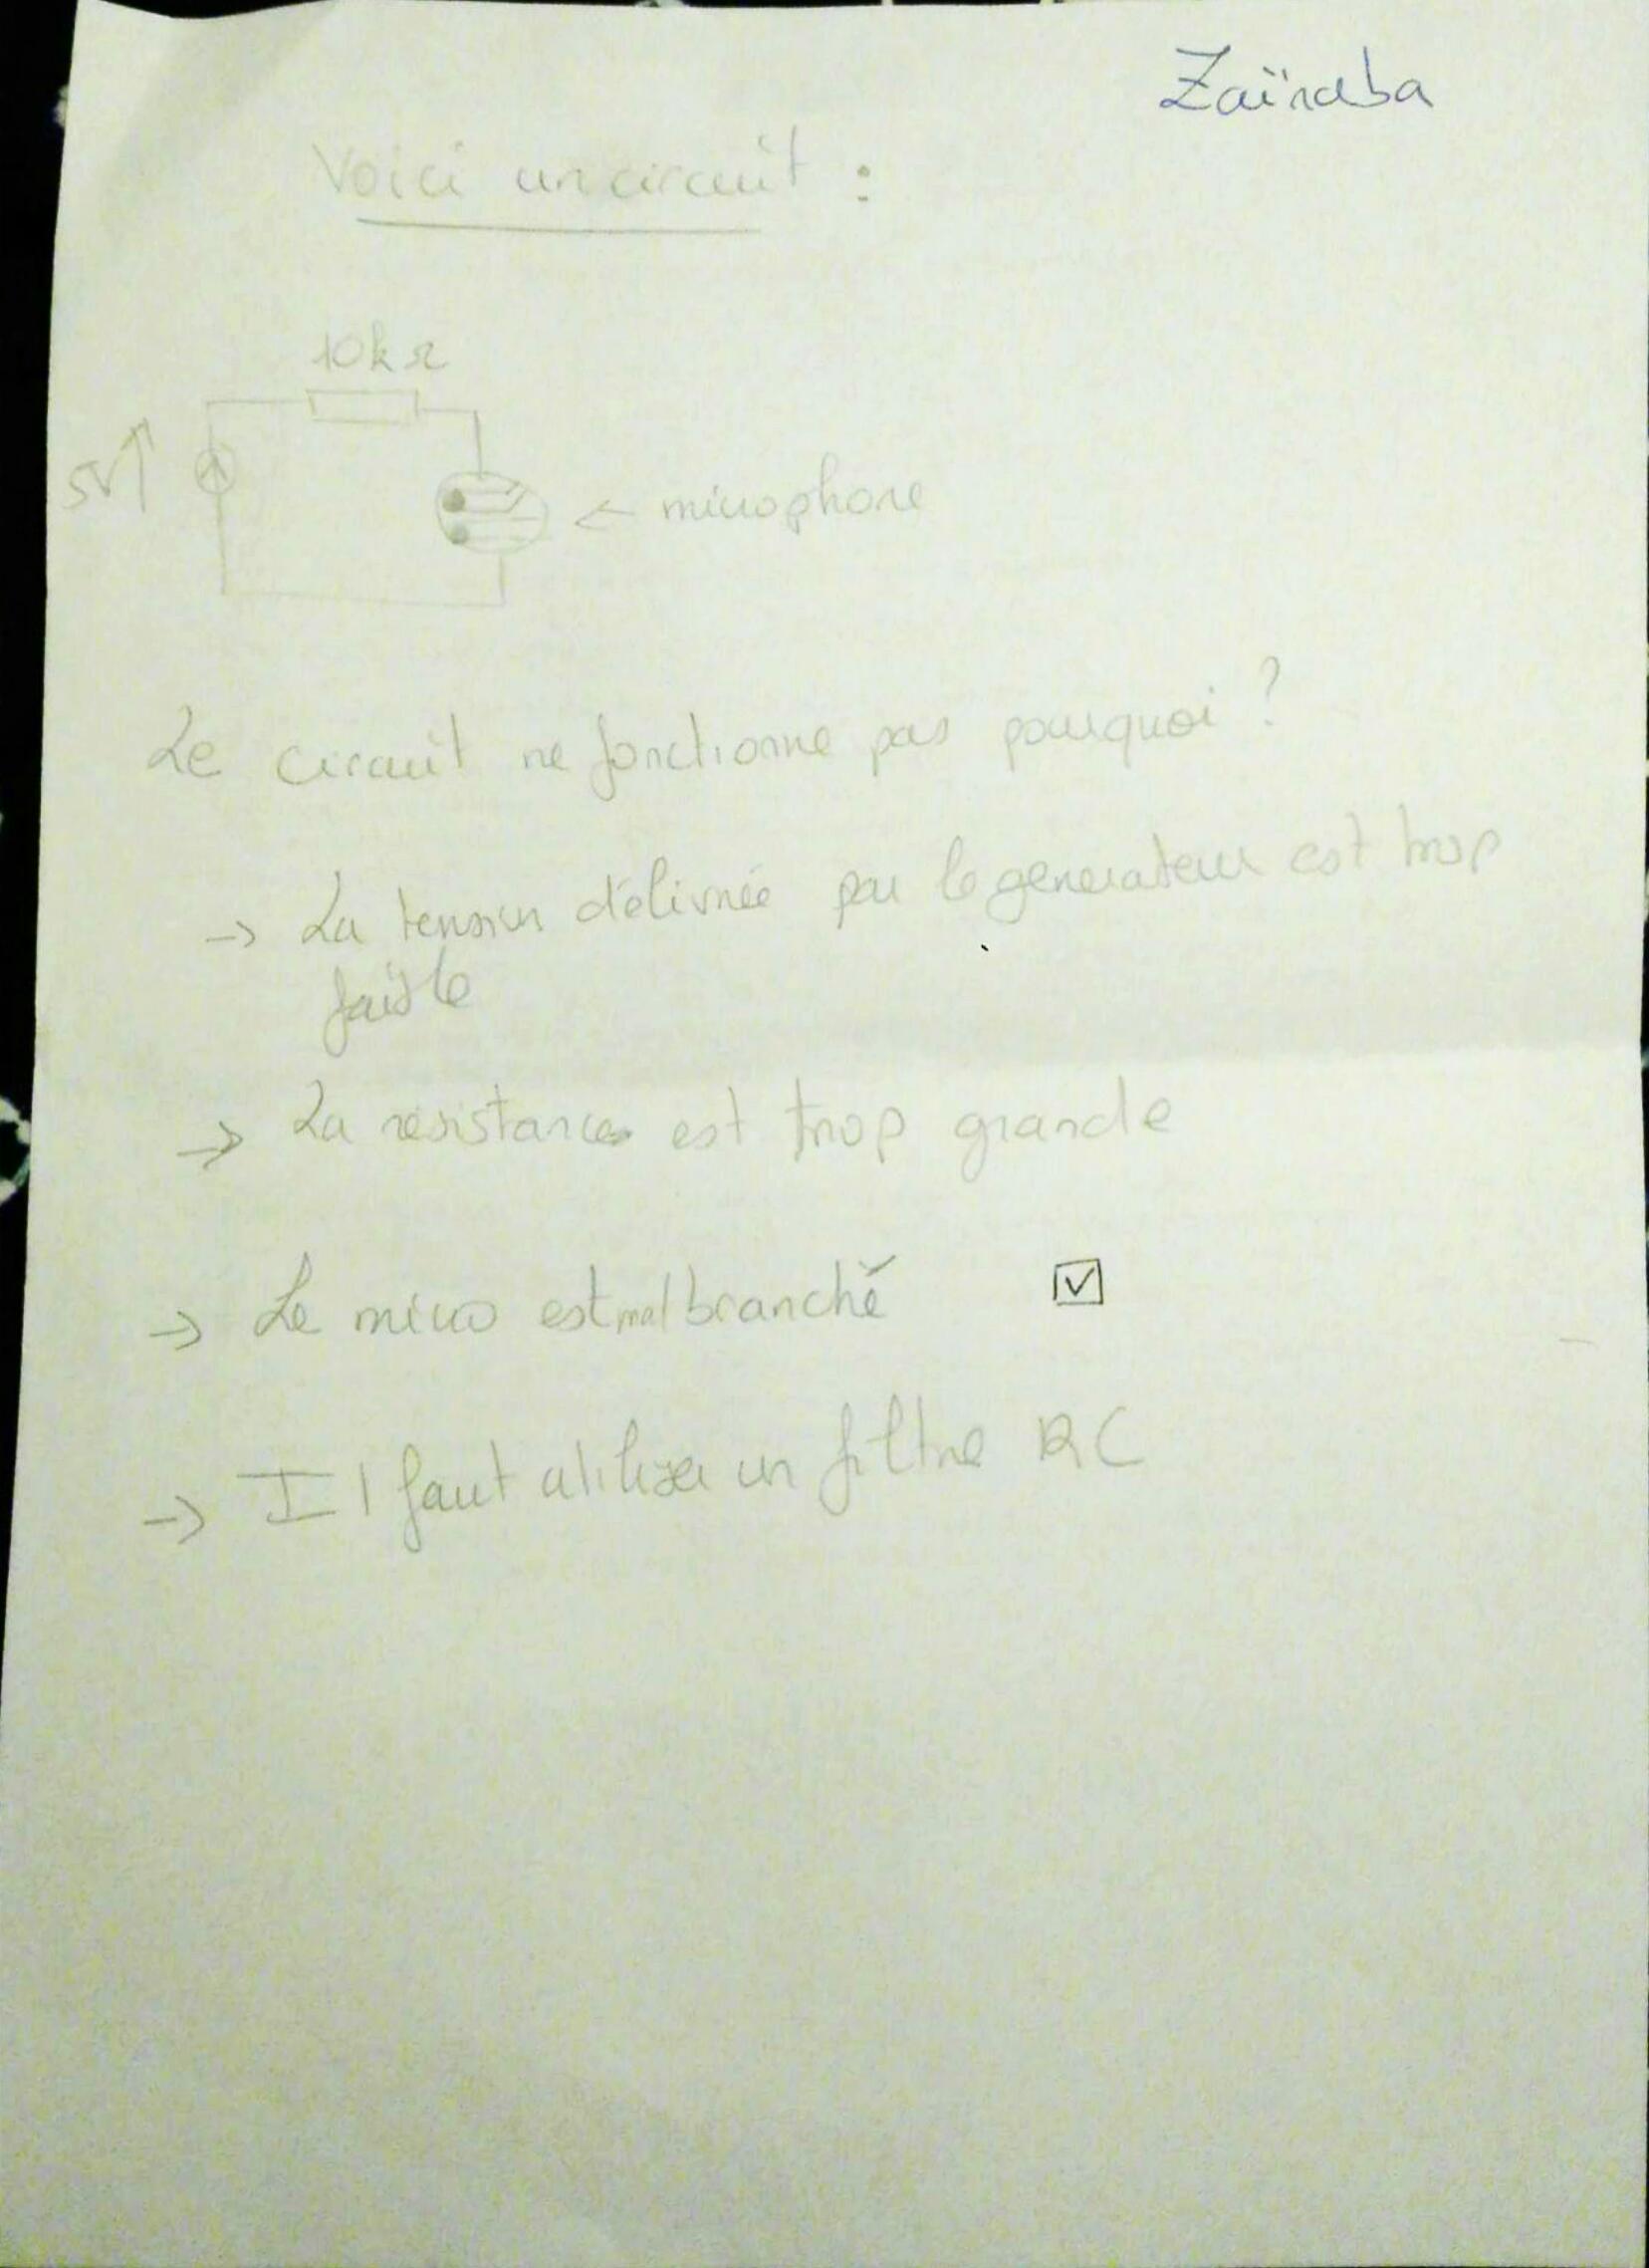 Zaïnaba
Voici un circuit :
10kΩ
5V
← microphone
Le circuit ne fonctionne pas pourquoi ?
→ La tension délivrée par le generateur est trop
faible
→ La résistance est trop grande
→ Le micro est mal branché ☑
→ Il faut utiliser un filtre RC